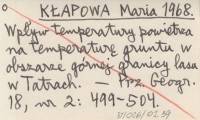 KŁAPOWA Maria 1968.
Wpływ temperatury powietrza
na temperaturę gruntu w
obszarze górnej granicy lasa
w Tatrach. — Prz. Geogr.
18, nr 2: 499-504.